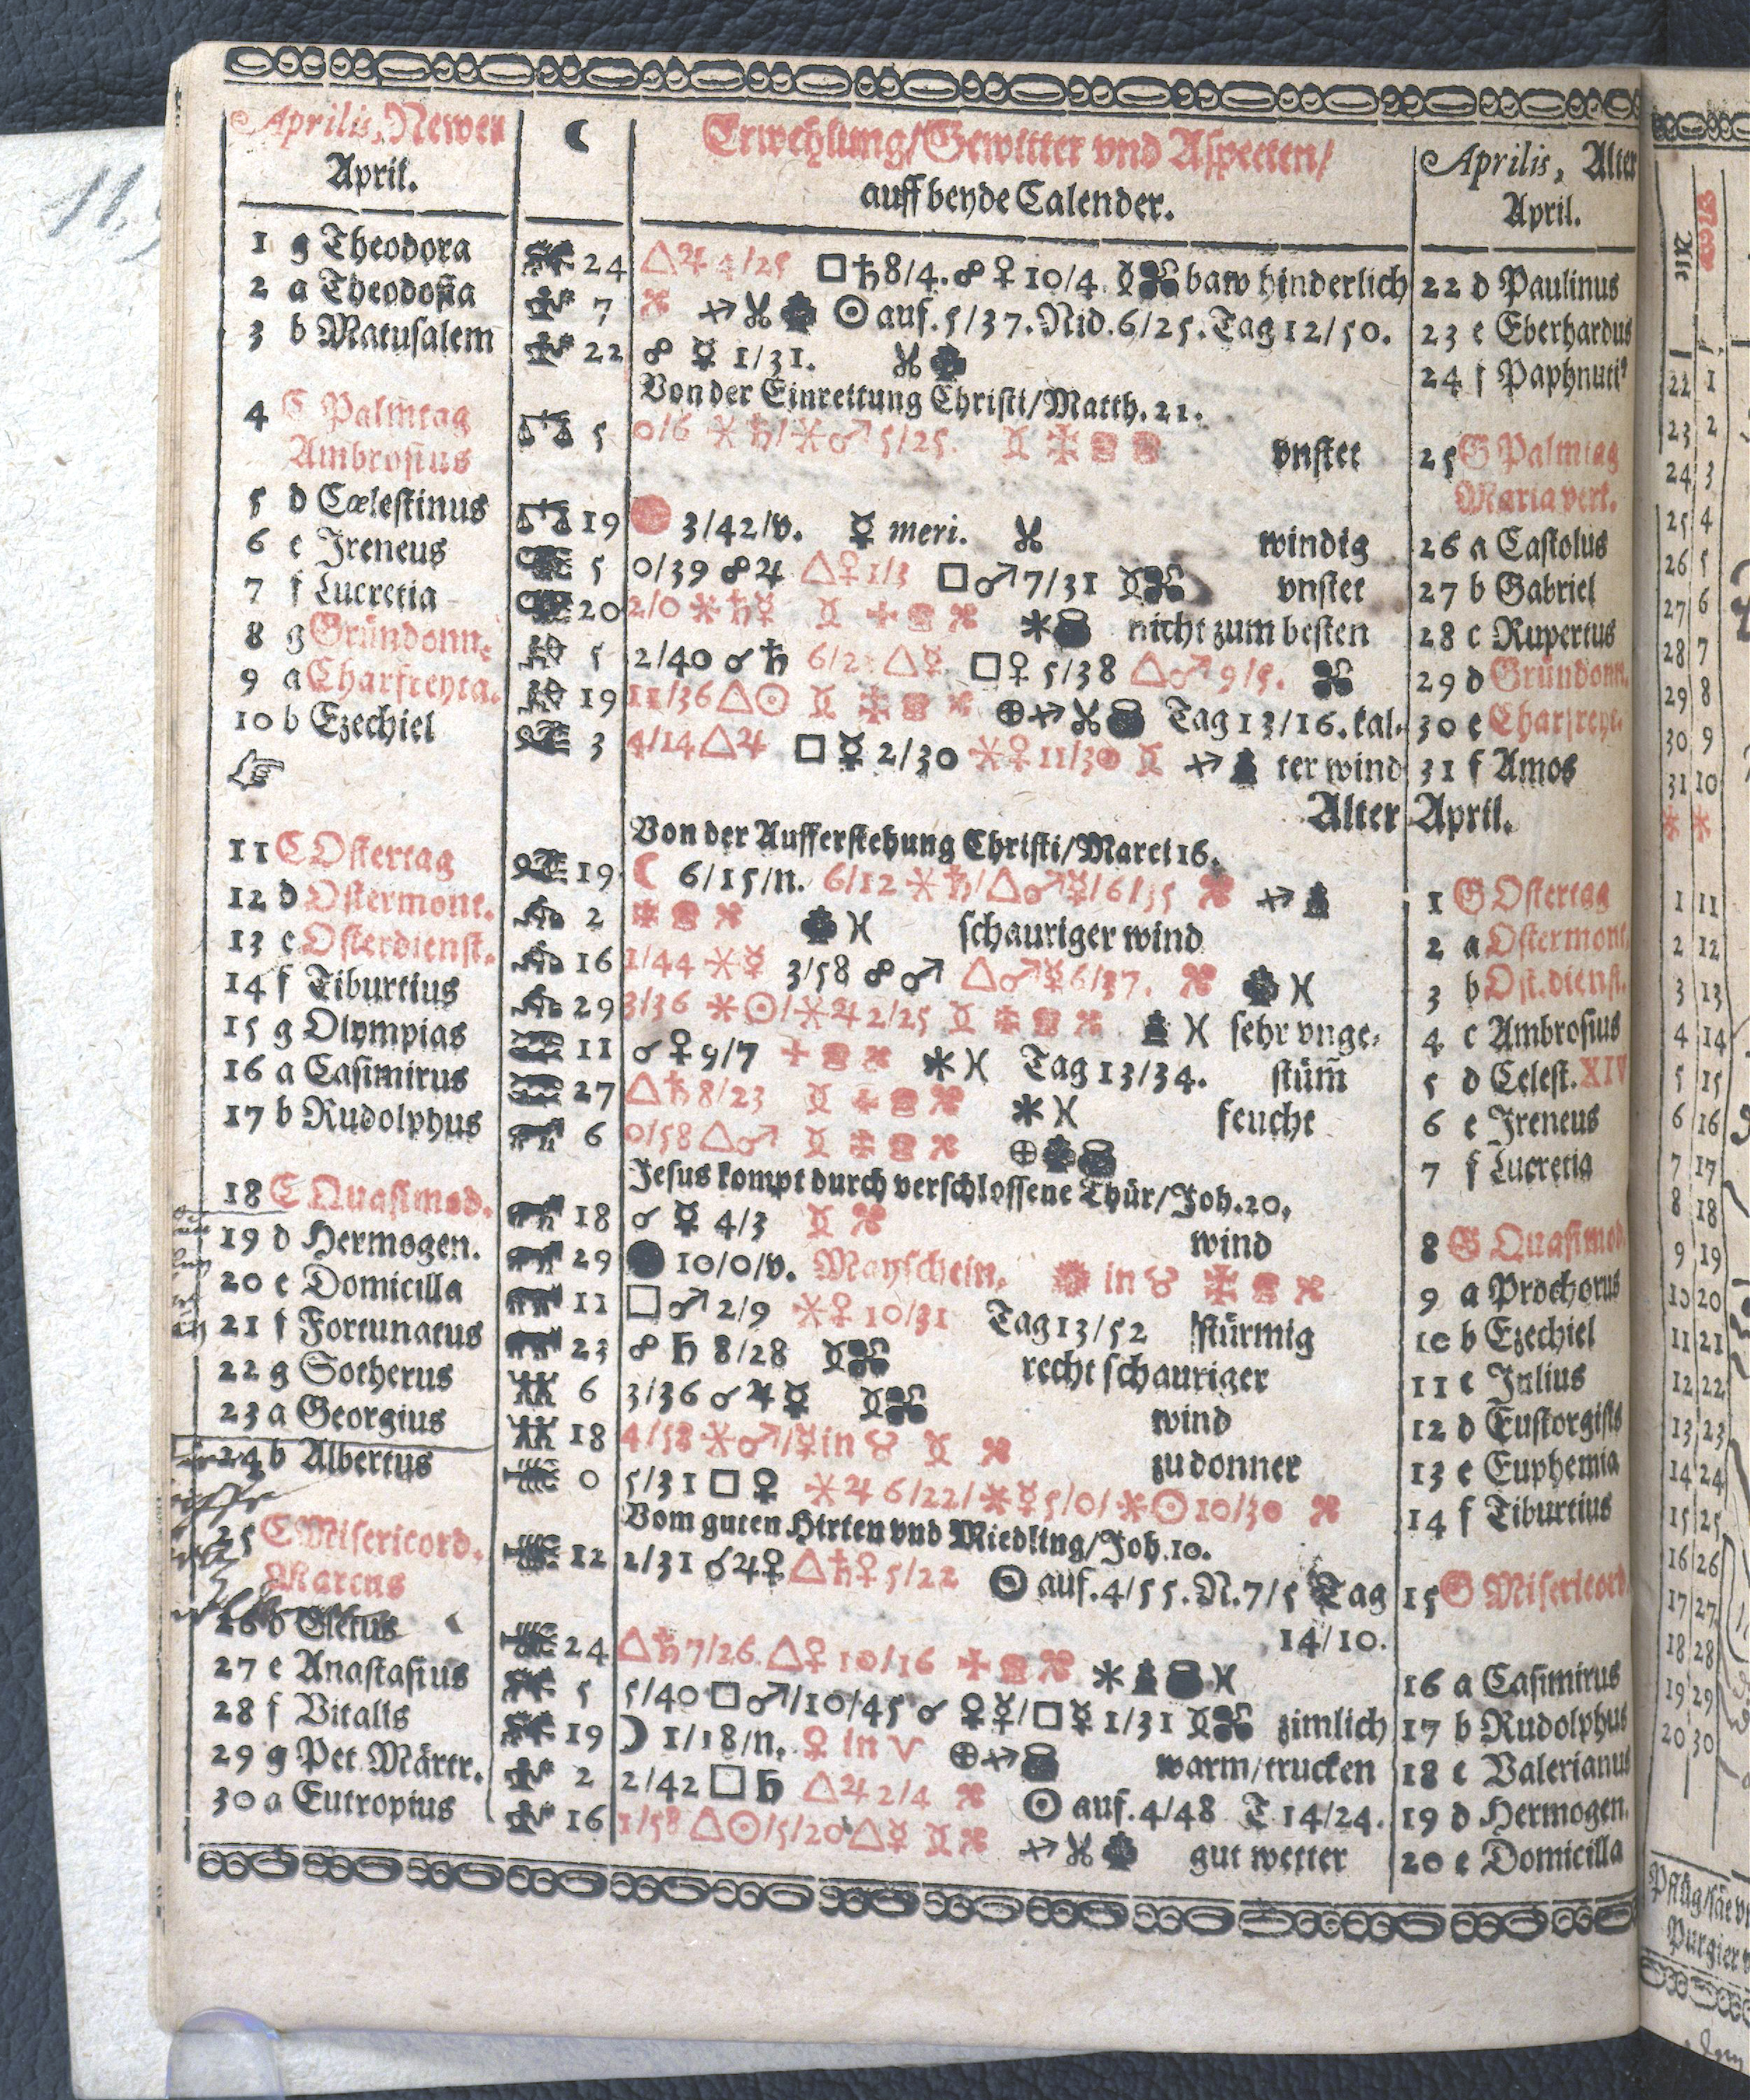 Aprilis, Newer April.
☾
Erwehlung/Gewitter vnd Aspecten/
auff beyde Calender.
Aprilis, Alter April.
1 g Theodora 24 △♃ 4/25 □♄ 8/4. ☍♀ 10/4. baw hinderlich 22 d Paulinus
2 a Theodosia 7 ☉ auf. 5/37. Nid. 6/25. Tag 12/50. 23 e Eberhardus
3 b Matusalem 22 ☍ ☿ 1/31. 24 f Paphnuti⁹
Von der Einreittung Christi/Matth. 21.
4 C Palmtag 5 0/6 ⚹♄/⚹♂ 5/25. vnstet 25 G Palmtag
Ambrosius Maria verk.
5 d Cœlestinus 19 3/42/v. ☿ meri. windig 26 a Castolus
6 e Ireneus 5 0/39 ☍♃ △♀ 1/3 □♂ 7/31 vnstet 27 b Gabriel
7 f Lucretia 20 2/0 ⚹♄☿ nicht zum besten 28 c Rupertus
8 g Gründonn. 5 2/40 ☌♄ △☿ □♀ 5/38 △♂ 9/5. 29 d Gründonn.
9 a Charfreyta. 19 11/36 △☉ Tag 13/16. kal- 30 e Charfreyt.
10 b Ezechiel 3 4/14 △♃ □☿ 2/30 ⚹♀ 11/30 ter wind 31 f Amos
☞ Alter April.
Von der Aufferstehung Christi/Marci 16.
11 C Ostertag 19 ☾ 6/15/n. 6/12 ⚹♄/△♂☿/6/35 1 G Ostertag
12 d Ostermont. 2 schauriger wind 2 a Ostermont.
13 e Osterdienst. 16 1/44 ⚹☿ 3/58 ☍♂ △♂☿ 6/37. 3 b Ost. dienst.
14 f Tiburtius 29 3/36 ⚹☉/⚹♃ 2/25 sehr vnge- 4 c Ambrosius
15 g Olympias 11 ☌♀ 9/7 Tag 13/34. stüm̃ 5 d Celest. XIV
16 a Casimirus 27 △♄ 8/23 feucht 6 e Ireneus
17 b Rudolphus 6 0/58 △♂ 7 f Lucretia
Jesus kompt durch verschlossene Thür/Joh. 20.
18 C Quasimod. 18 ☌ ☿ 4/3 wind 8 G Quasimod.
19 d Hermogen. 29 10/0/v. Mayschein. in ♉ 9 a Prochorus
20 e Domicilla 11 □♂ 2/9 ⚹♀ 10/31 Tag 13/52 stürmig 10 b Ezechiel
21 f Fortunatus 23 ☍ ♄ 8/28 recht schauriger 11 c Julius
22 g Sotherus 6 3/36 ☌♃☿ wind 12 d Eustorgius
23 a Georgius 18 4/58 ⚹♂/☿ in ♉ zu donner 13 e Euphemia
24 b Albertus 0 5/31 □ ♀ ⚹♃ 6/22/⚹☿ 5/0/⚹☉ 10/30 14 f Tiburtius
Vom guten Hirten vnd Miedling/Joh. 10.
25 C Misericord. 12 2/31 ☌♃♀ △♄♀ 5/22 ☉ auf. 4/55. N. 7/5 Tag 15 G Misericord.
Marcus 14/10.
26 d Cletus 24 △♄ 7/26 △♀ 10/16 16 a Casimirus
27 e Anastasius 5 5/40 □♂/10/45 ☌ ♀☿/□☿ 1/31 zimlich 17 b Rudolphus
28 f Vitalis 19 ☽ 1/18/n. ♀ in ♈ warm/trucken 18 c Valerianus
29 g Pet. Märtr. 2 2/42 □ ♄ △♃ 2/4 ☉ auf. 4/48 T. 14/24. 19 d Hermogen.
30 a Eutropius 16 1/58 △☉/5/20 △☿ gut wetter 20 e Domicilla
22 1
23 2
24 3
25 4
26 5
27 6
28 7
29 8
30 9
31 10
1 11
2 12
3 13
4 14
5 15
6 16
7 17
8 18
9 19
10 20
11 21
12 22
13 23
14 24
15 25
16 26
17 27
18 28
19 29
20 30